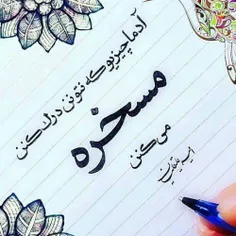 آدما چیزیو که نتونن درک کنن
مسخره
می کنن